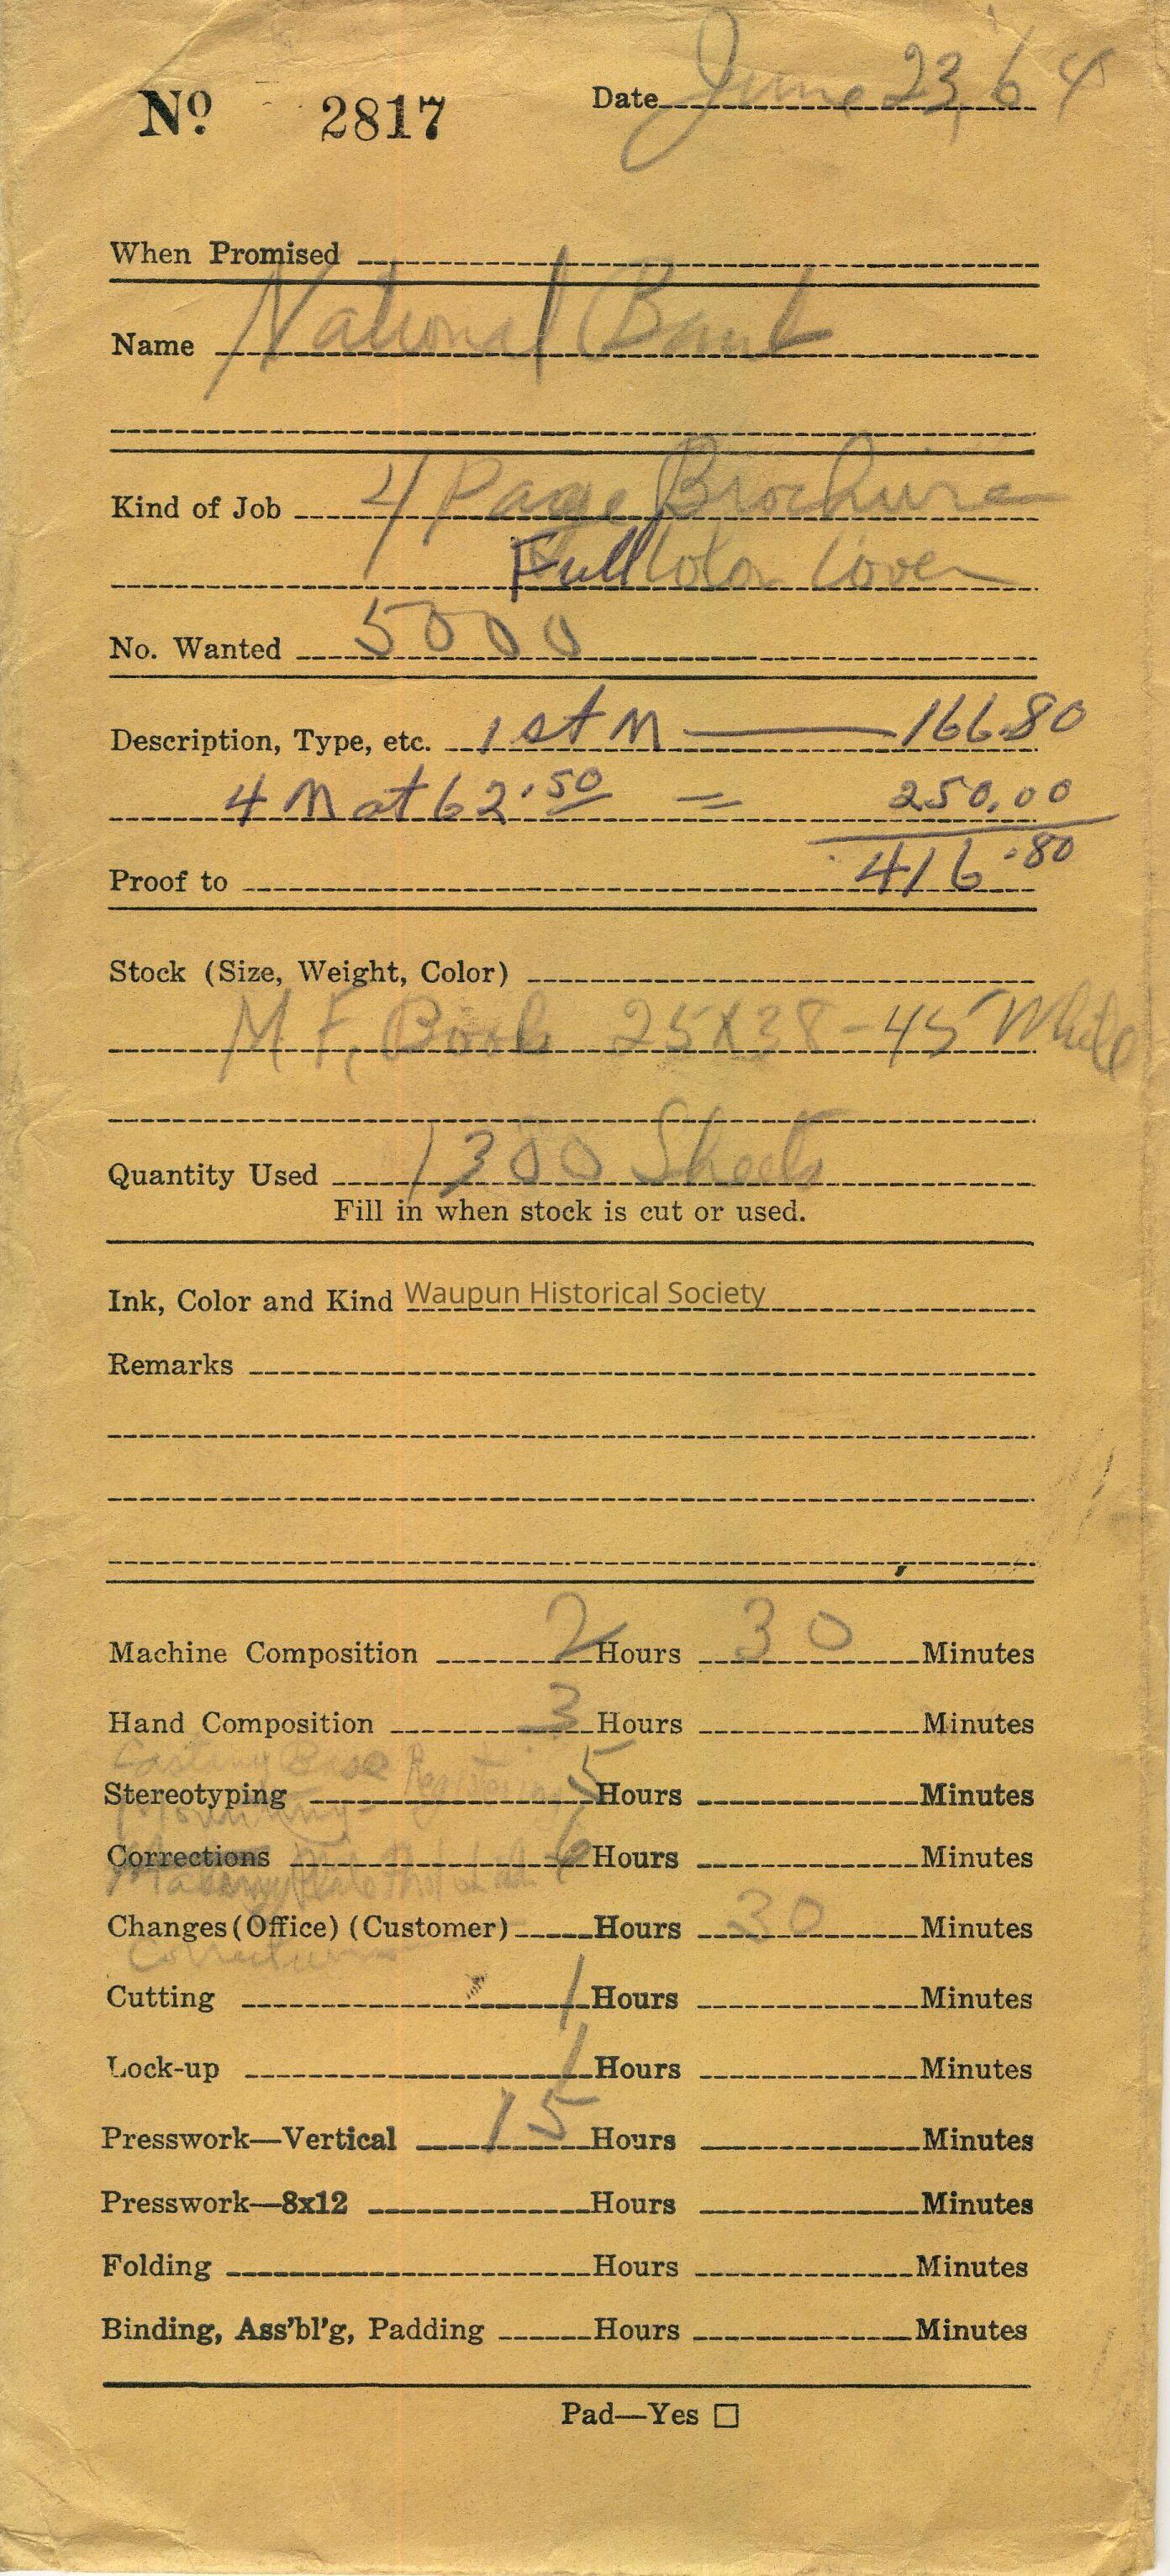 No. 2817 Date June 23, 64
When Promised
Name National Bank
Kind of Job 4 Page Brochure
Full Color Cover
No. Wanted 5000
Description, Type, etc. 1st M — 166.80
4 M at 62.50 = 250.00
Proof to 416.80
Stock (Size, Weight, Color)
M F, Book 25X38-45 White
Quantity Used 1300 Sheets
Fill in when stock is cut or used.
Ink, Color and Kind Waupun Historical Society
Remarks
Machine Composition 2 Hours 30 Minutes
Hand Composition 3 Hours Minutes
Casting Base Registering
Stereotyping 5 Hours Minutes
Mounting-
Corrections 6 Hours Minutes
Changes (Office) (Customer) Hours 30 Minutes
Corrections
Cutting 1 Hours Minutes
Lock-up 1 Hours Minutes
Presswork—Vertical 15 Hours Minutes
Presswork—8x12 Hours Minutes
Folding Hours Minutes
Binding, Ass'bl'g, Padding Hours Minutes
Pad—Yes □